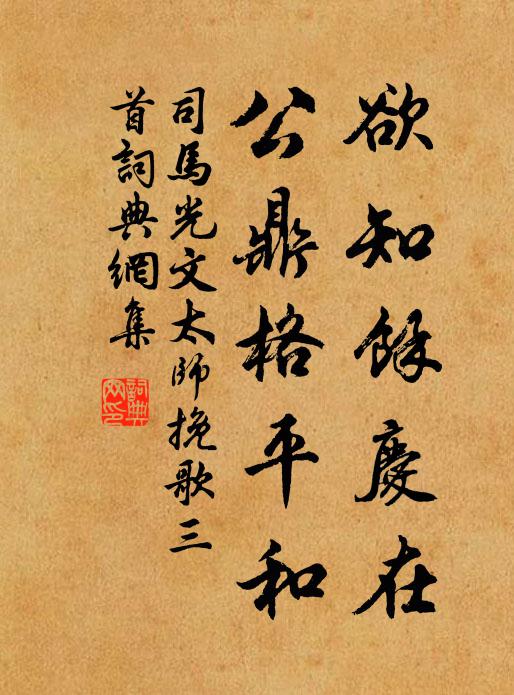 欲知餘慶在
公鼎格平和
司馬光文太師挽歌三
首詞典網集
詞典網印